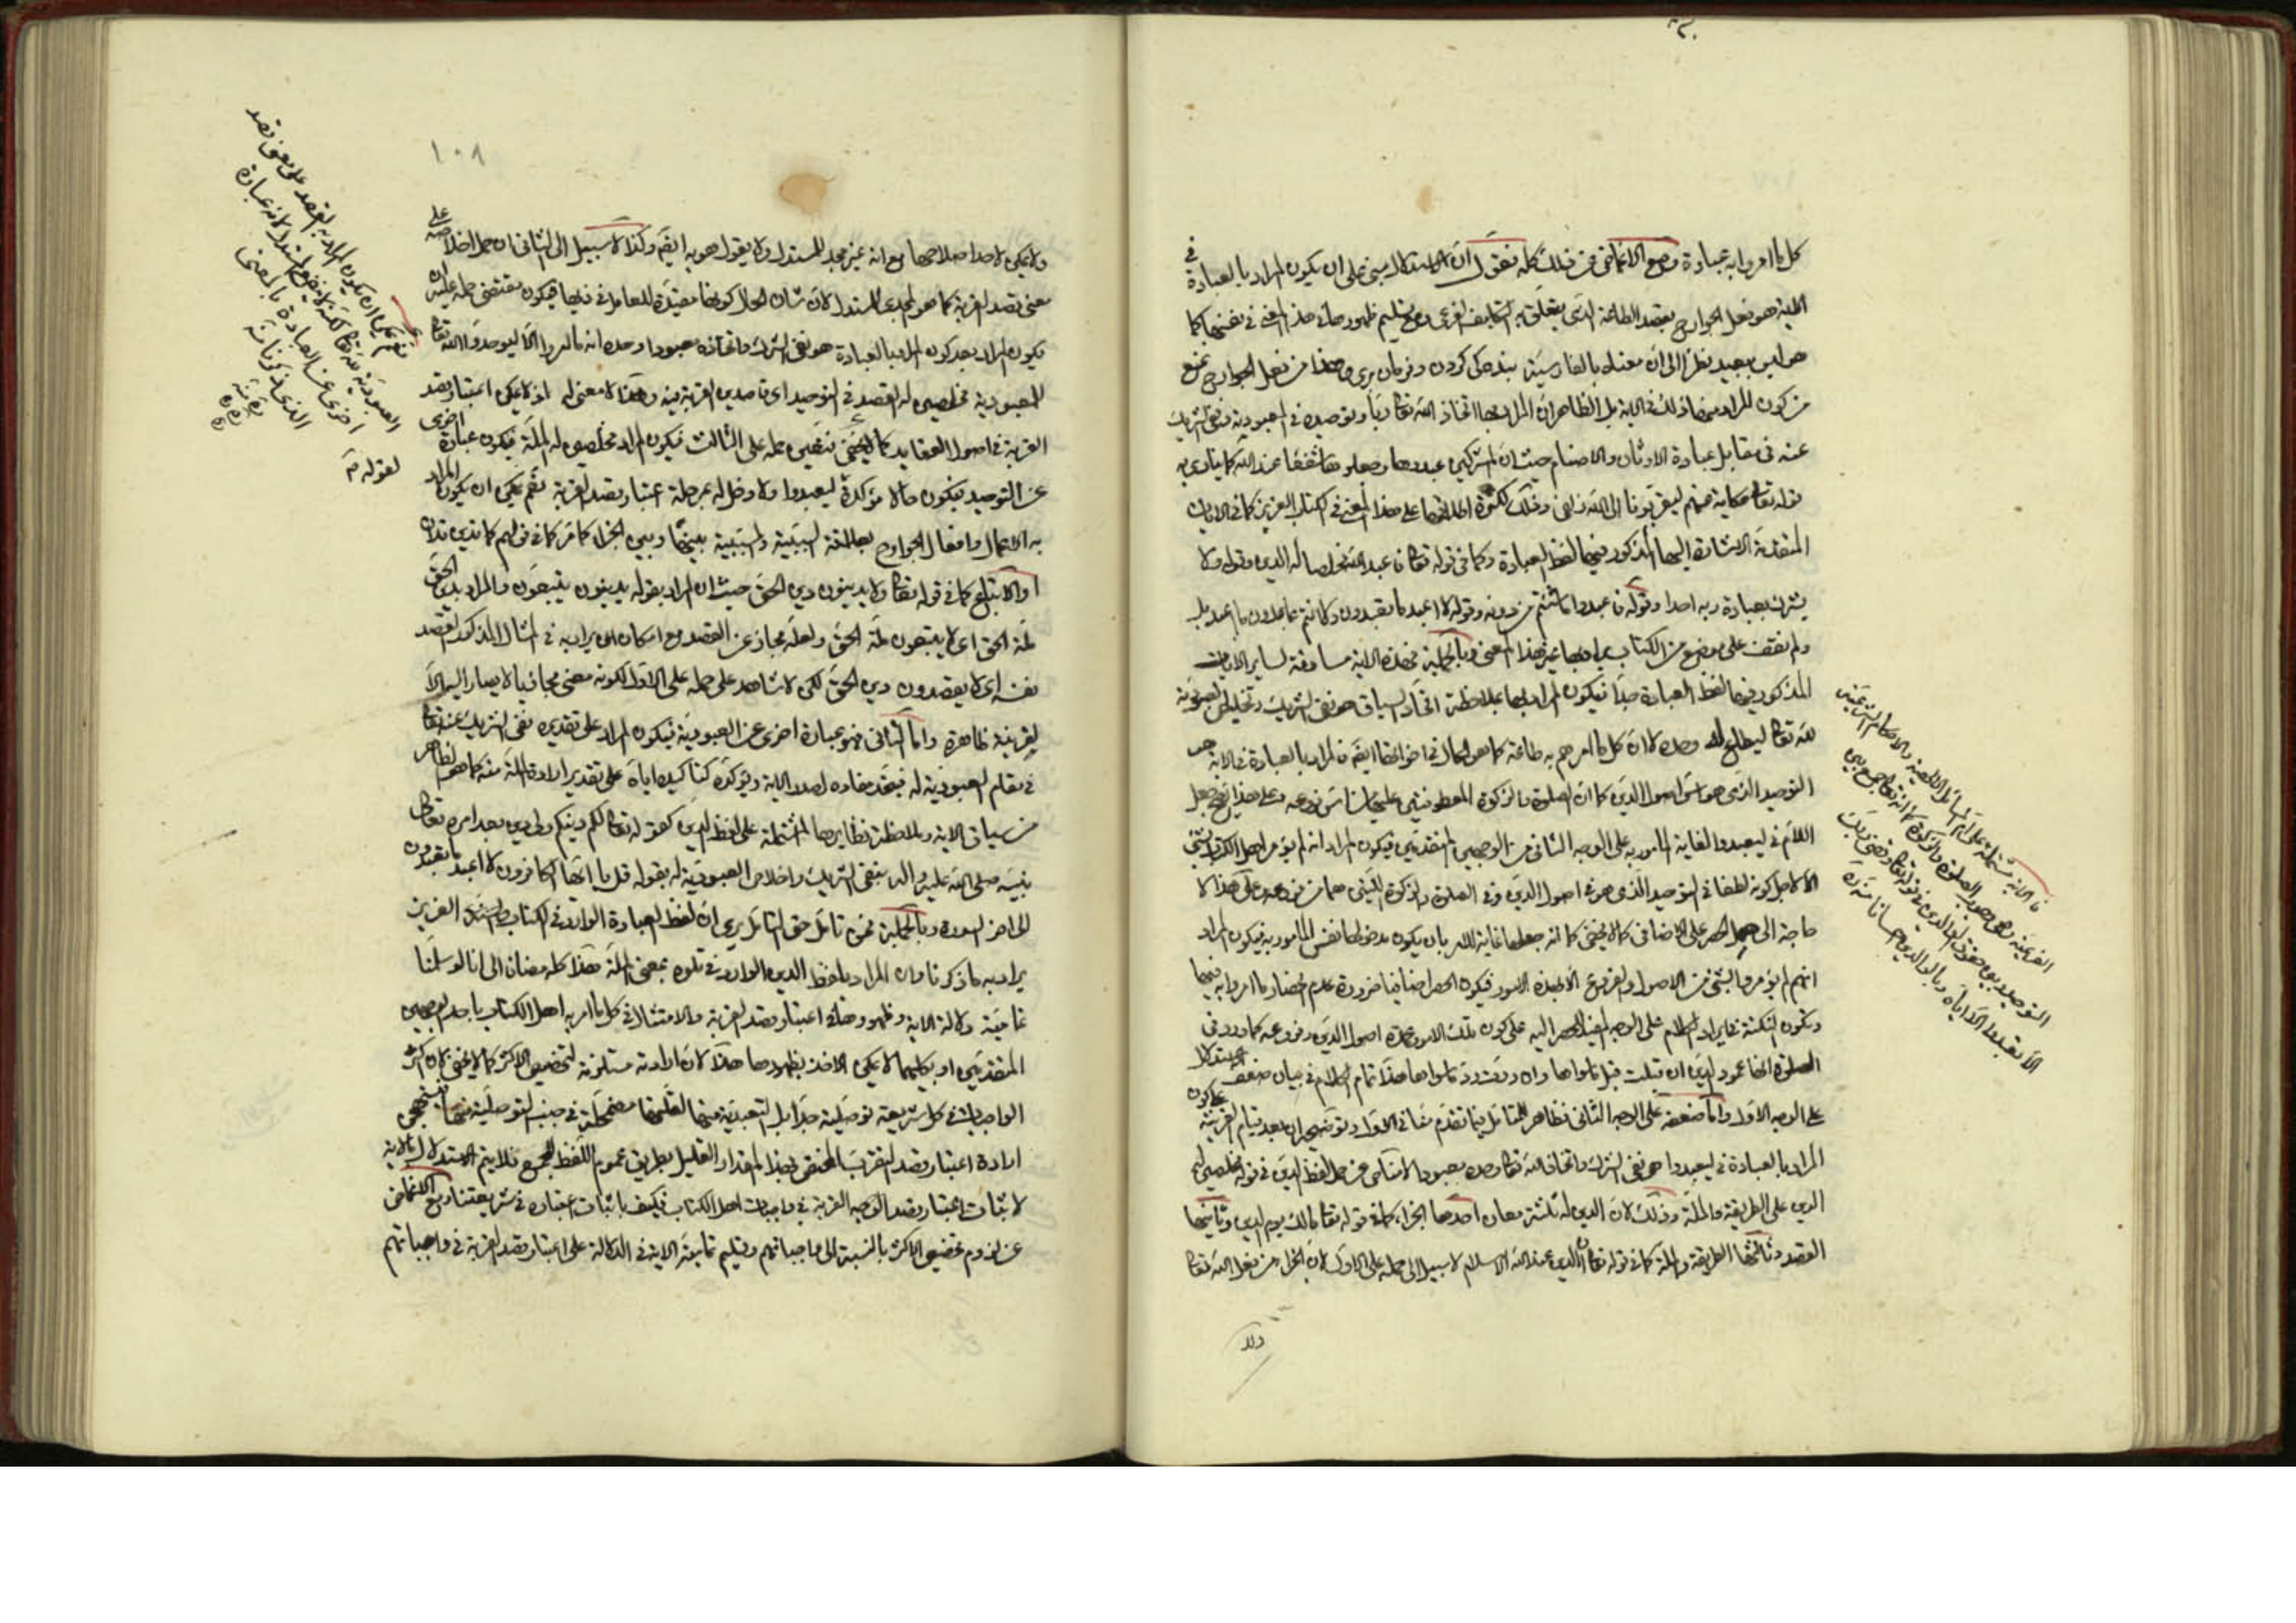 كل ما امروا به عبادة ومع الاغماض عن ذلك كله نقول ان الاستدلال مبني على ان يكون المراد بالعبادة في
الآية هو فعل الجوارح بقصد الطاعة الذي يتعلق به التكليف الفرعي ومع تسليم ظهورها في هذا المعنى في نفسها كما
هو ليس ببعيد نظرا الى ان معناه بالفارسية بندكى كردن وفرمان برى وهذا من فعل الجوارح نمنع
من كون المراد منها ذلك في الآية بل الظاهر ان المراد بها اتخاذ الله تعالى ربا وتوحيده في المعبودية ونفي الشريك
عنه في مقابل عبادة الاوثان والاصنام حيث ان المشركين عبدوها وجعلوها شفعاء عند الله كما ينادي به
قوله تعالى حكاية عنهم ليقربونا الى الله زلفى وذلك لكثرة اطلاقها على هذا المعنى في الكتاب العزيز كما في الايات
المتقدمة الاشارة اليها المذكور فيها لفظ العبادة وكما في قوله تعالى فاعبد الله مخلصا له الدين وقوله ولا
يشرك بعبادة ربه احدا وقوله فاعبدوا ما شئتم من دونه وقوله لا اعبد ما تعبدون ولا انتم عابدون ما اعبد بل
ولم نقف على موضع من الكتاب يراد بها غير هذا المعنى وبالجملة فهذه الآية مساوقة لساير الايات
المذكور فيها لفظ العبادة جدا فيكون المراد بها بملاحظة اتحاد السياق هو نفي الشريك وتخليص العبودية
لله تعالى وحده لا ان كل ما امرهم به طاعة كما هو الحال في اخواتها ايضا فالمراد بالعبادة في الآية هو
التوحيد الذي هو اس اصول الدين كما ان الصلوة والزكوة المعطوفتين عليها اساس فروعه وعلى هذا فجعل
اللام في ليعبدوا لغاية المامور به على الوجه الثاني من الوجهين المتقدمين فيكون المراد انه لم يؤمر اهل الكتاب بشئ
الا لاجل كونه لطفا في التوحيد الذي هو من اصول الدين وفي الصلوة والزكوة اللتين هما من فروعه وعلى هذا لا
حاجة الى حمل الحصر على الاضافي كما لا يخفى كما انه جعلها غاية للامر بان يكون مدخولها نفس المامور به فيكون المراد
انهم لم يؤمروا بشئ من الاصول والفروع الا بهذه الامور فيكون الحصر اضافيا ضرورة عدم انحصار ما امروا به فيها
وتكون النكتة في ايراد الكلام على الوجه المفيد للحصر اليه على كون تلك الامور عمدة اصول الدين وفروعه كما ورد في
الصلوة انها عمود الدين ان قبلت قبل ما سواها وان ردت رد ما سواها هذا تمام الكلام في بيان ضعف الاستدلال
على الوجه الاول واما ضعفه على الوجه الثاني فظاهر للمتامل فيما تقدم منا في الاول وتوضيحه انه بعد قيام القرينة على كون
المراد بالعبادة في ليعبدوا هو نفي الشرك واتخاذ الله تعالى وحده معبودا لا مناص من حمل لفظ الدين في قوله مخلصين له
الدين على الطريقة والملة وذلك لان الدين له ثلثة معان احدها الجزاء كما في قوله تعالى مالك يوم الدين وثانيها
القصد وثالثها الطريقة والملة كما في قوله تعالى ان الدين عند الله الاسلام لا سبيل الى حمله على الاول لان الجزاء من فعل الله تعالى
ولا
فالآية مشتملة على اهم المسائل الاصلية والاحكام الشرعية
الفرعية وهي وجوب الصلوة والزكوة كما انه تعالى جمع بين
التوحيد وبين حقوق الوالدين في قوله تعالى وقضى ربك
الا تعبدوا الا اياه وبالوالدين احسانا منه ره
١٠٨
ولا يمكن لاحد اخلاصها مع انه غير مجد للمستدل ولا يقول هو به ايضا وكذا لا سبيل الى الثاني لان حمل اخلاصه على
معنى قصد القربة كما هو المجدي للمستدل لان شان الحال كونها مقيدة للعامل في ذيلها فيكون مقتضى حمله عليه ان
يكون المراد بعد كون المراد بالعبادة هو نفي الشرك واتخاذه معبودا وحده انه ما امروا الا ليوحدوا الله تعالى
للمعبودية مخلصين له القصد في التوحيد اى قاصدين القربة فيه وهذا لا معنى له اذ لا يمكن اعتبار قصد
القربة في اصول العقايد كما لا يخفى فتعين حمله على الثالث فيكون المراد مخلصين له الملة فيكون عبارة اخرى
عن التوحيد فيكون حالا مؤكدة ليعبدوا ولا دخل له بمرحلة اعتبار قصد القربة نعم يمكن ان يكون المراد
به الاعمال وافعال الجوارح بعلاقة السببية والمسببية بينها وبين الجزاء كما مر كما في قولهم كما تدين تدان
او الاتباع كما في قوله تعالى ولا يدينون دين الحق حيث ان المراد بقوله يدينون يتبعون والمراد بدين الحق
ملة الحق اى لا يتبعون ملة الحق ولعله مجاز عن القصد مع امكان ان يراد به في المثال المذكور القصد
نفسه اى لا يقصدون دين الحق لكن لا شاهد على حمله على الاول لكونه معنى مجازيا لا يصار اليه الا
لقرينة ظاهرة واما الثاني فهو عبارة اخرى عن العبودية فيكون المراد على تقديره نفي الشريك عنه تعالى
في مقام العبودية له فيتحد مفاده لصدر الآية ويؤكده كتاكيده اياه على تقدير ارادة الملة منه كما هو الظاهر
من سياق الآية وبملاحظة نظايرها المشتملة على لفظ الدين كقوله تعالى لكم دينكم ولي دين بعد امره تعالى
نبيه صلى الله عليه واله بنفي الشريك واخلاص العبودية له بقوله قل يا ايها الكافرون لا اعبد ما تعبدون
الى اخر السورة وبالجملة فمن تامل حق التامل يرى ان لفظ العبادة الوارد في الكتاب العزيز
يراد به ما ذكرنا وان المراد بلفظ الدين الوارد في تلوه بمعنى الملة هذا كله مضافا الى انا لو سلمنا
تمامية دلالة الآية وظهورها في اعتبار قصد القربة والامتثال في كل ما امر به اهل الكتاب باحد الوجهين
المتقدمين او بكليهما لا يمكن الاخذ بظهورها هذا لان ارادته مستلزمة لتخصيص الاكثر كما لا يخفى لان اكثر
الواجبات في كل شريعة توصلية جدا بل التعبدية منها لقلتها مضمحلة في جنب التوصلية منها فيستهجن
ارادة اعتبار قصد التقرب المختص بهذا المقدار القليل بطريق عموم اللفظ للجميع فلا يتم الاستدلال بالآية
لاثبات اعتبار قصد الوجه القربة في واجبات اهل الكتاب فكيف باثبات اعتباره في شريعتنا ومع الاغماض
عن لزوم تخصيص الاكثر بالنسبة الى واجباتهم وتسليم تمامية الآية في الدلالة على اعتبار قصد القربة في واجباتهم
نعم يمكن ان يكون المراد به القصد على معنى قصد
العبودية لله تعالى لكنه لا ينفع المستدل لانه عبارة
اخرى عن العبادة بالمعنى
الذي ذكرناه
منه ره
لقوله مد